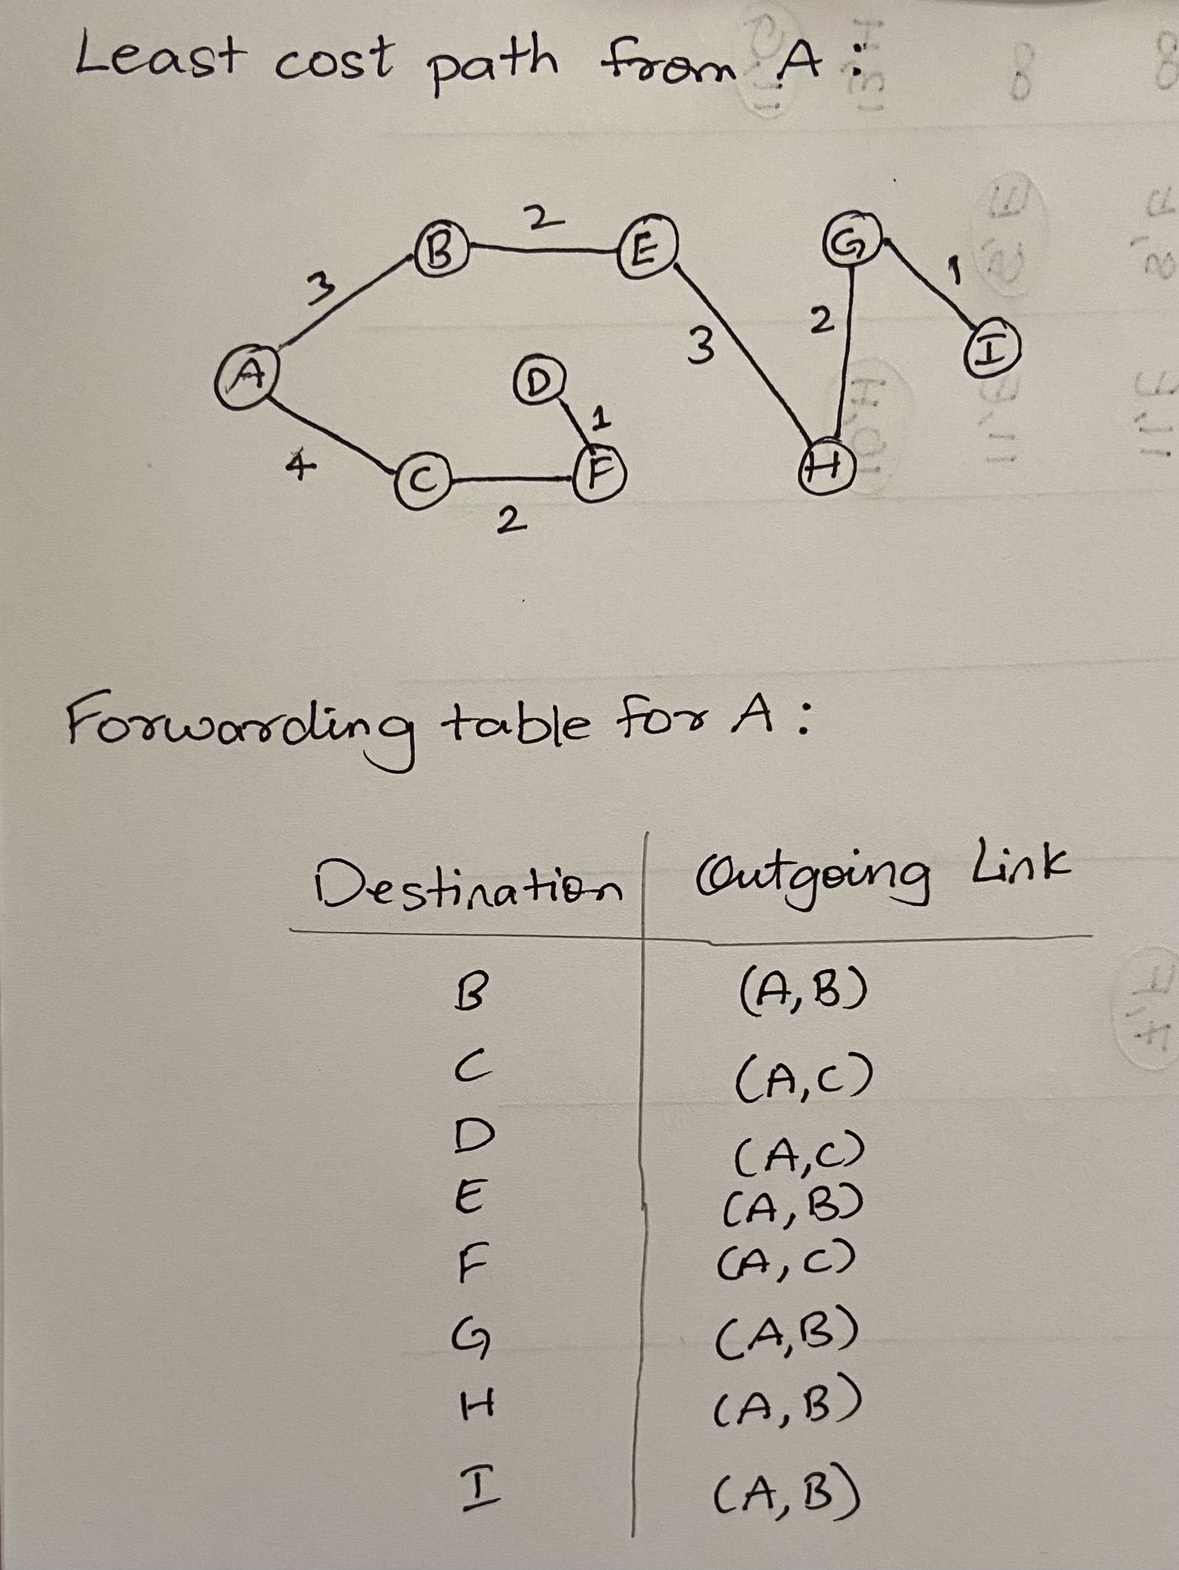 Least cost path from A :
2
B E G
3 1
2
3 I
A D
1
4 C F H
2
Forwarding table for A :
Destination Outgoing Link
B (A,B)
C (A,C)
D (A,C)
E (A,B)
F (A,C)
G (A,B)
H (A,B)
I (A,B)